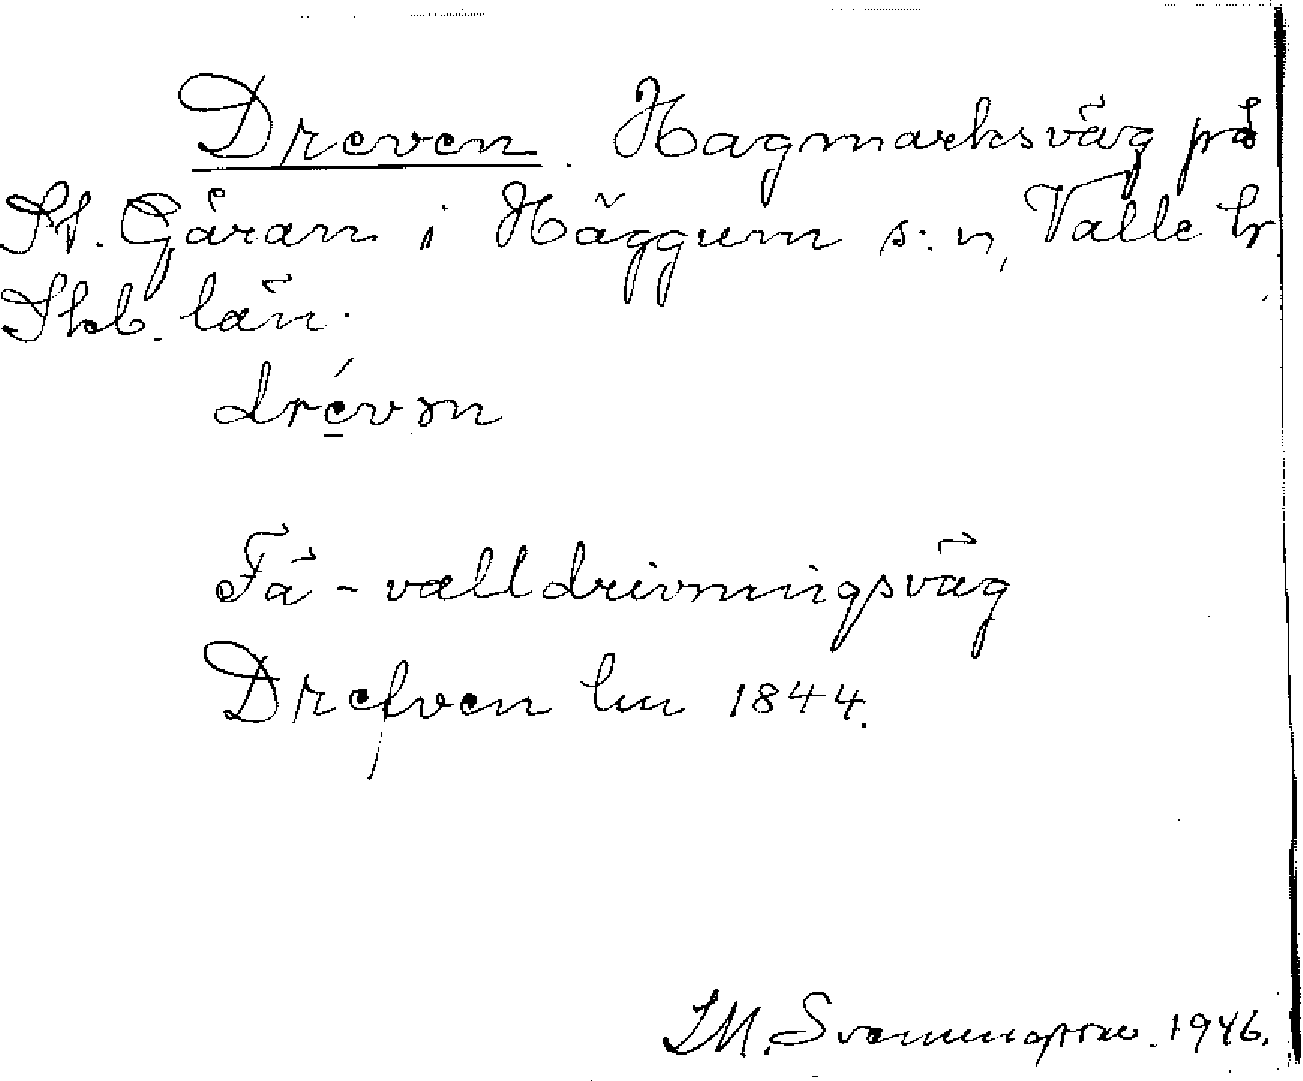 Dreven. Hagmarksväg på
St. Gåran i Häggum s:n, Valle hr
Skb. län.
drévən
Fä-valldrivningsväg
Drefven lm 1844.
1946.